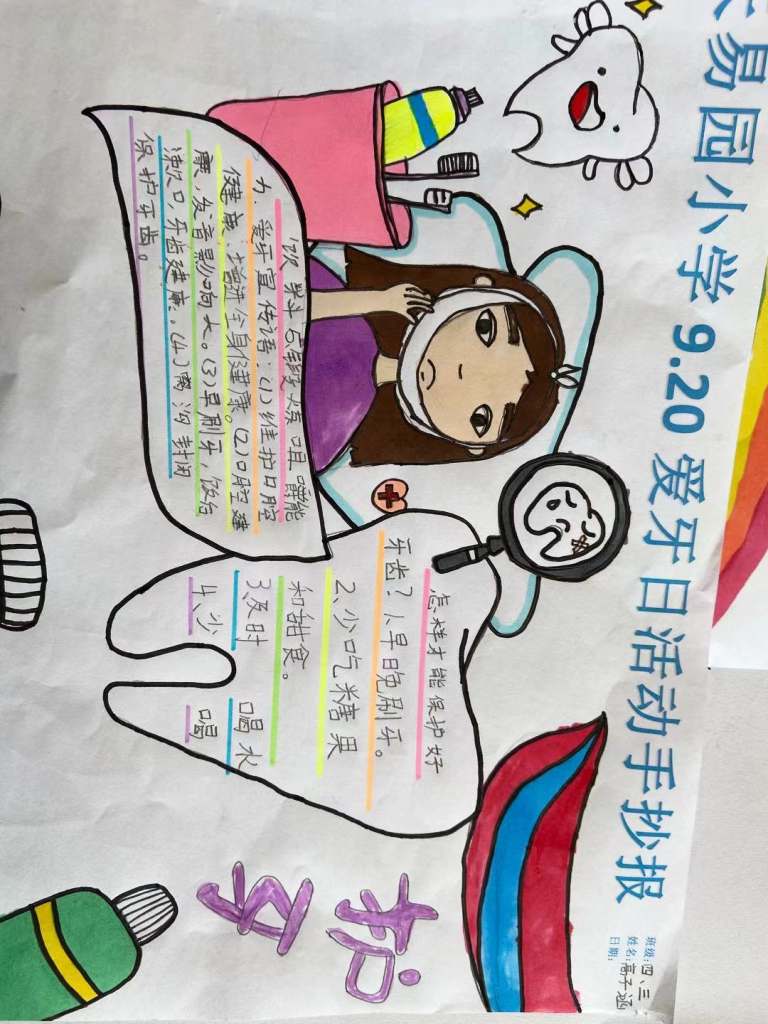 易园小学 9.20 爱牙日活动手抄报
班级:四、三
姓名:高子涵
日期:
护牙
怎样才能保护好
牙齿?1、早晚刷牙。
2、少吃糖果
和甜食。
3、及时 喝水
4、少 喝
饮料 咀嚼能
力. 爱牙宣传语:(1)维护口腔
健康,增进全身健康。(2)口腔健
康,发音影响大。(3)早刷牙,饭后
漱口,牙齿健康.(4)窝沟封闭
保护牙齿。